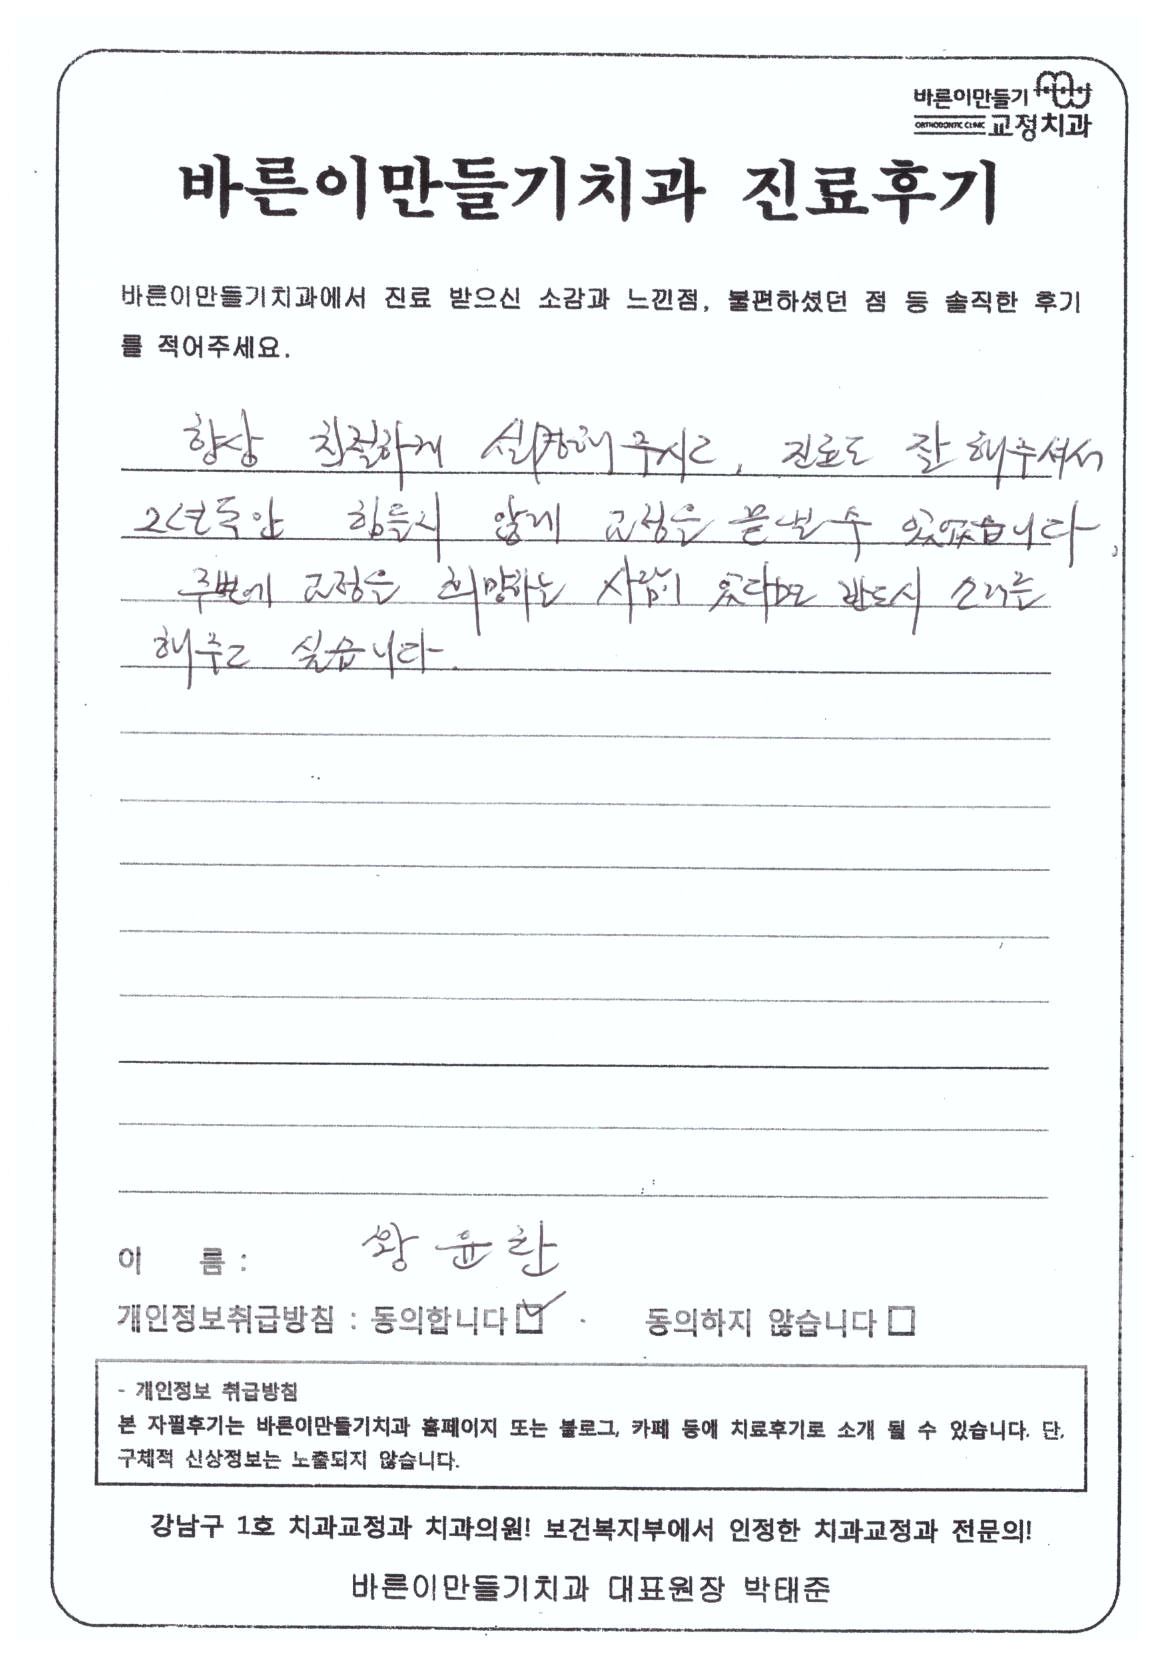 바른이만들기
ORTHODONTIC CLINIC 교정치과
바른이만들기치과 진료후기
바른이만들기치과에서 진료 받으신 소감과 느낀점, 불편하셨던 점 등 솔직한 후기
를 적어주세요.
항상 친절하게 설명해주시고, 진료도 잘 해주셔서
2년동안 힘들지 않게 교정을 끝낼 수 있었습니다.
주변에 교정을 희망하는 사람이 있다면 반드시 소개를
해주고 싶습니다.
이 름 : 왕윤환
개인정보취급방침 : 동의합니다 동의하지 않습니다
- 개인정보 취급방침
본 자필후기는 바른이만들기치과 홈페이지 또는 블로그, 카페 등에 치료후기로 소개 될 수 있습니다. 단,
구체적 신상정보는 노출되지 않습니다.
강남구 1호 치과교정과 치과의원! 보건복지부에서 인정한 치과교정과 전문의!
바른이만들기치과 대표원장 박태준